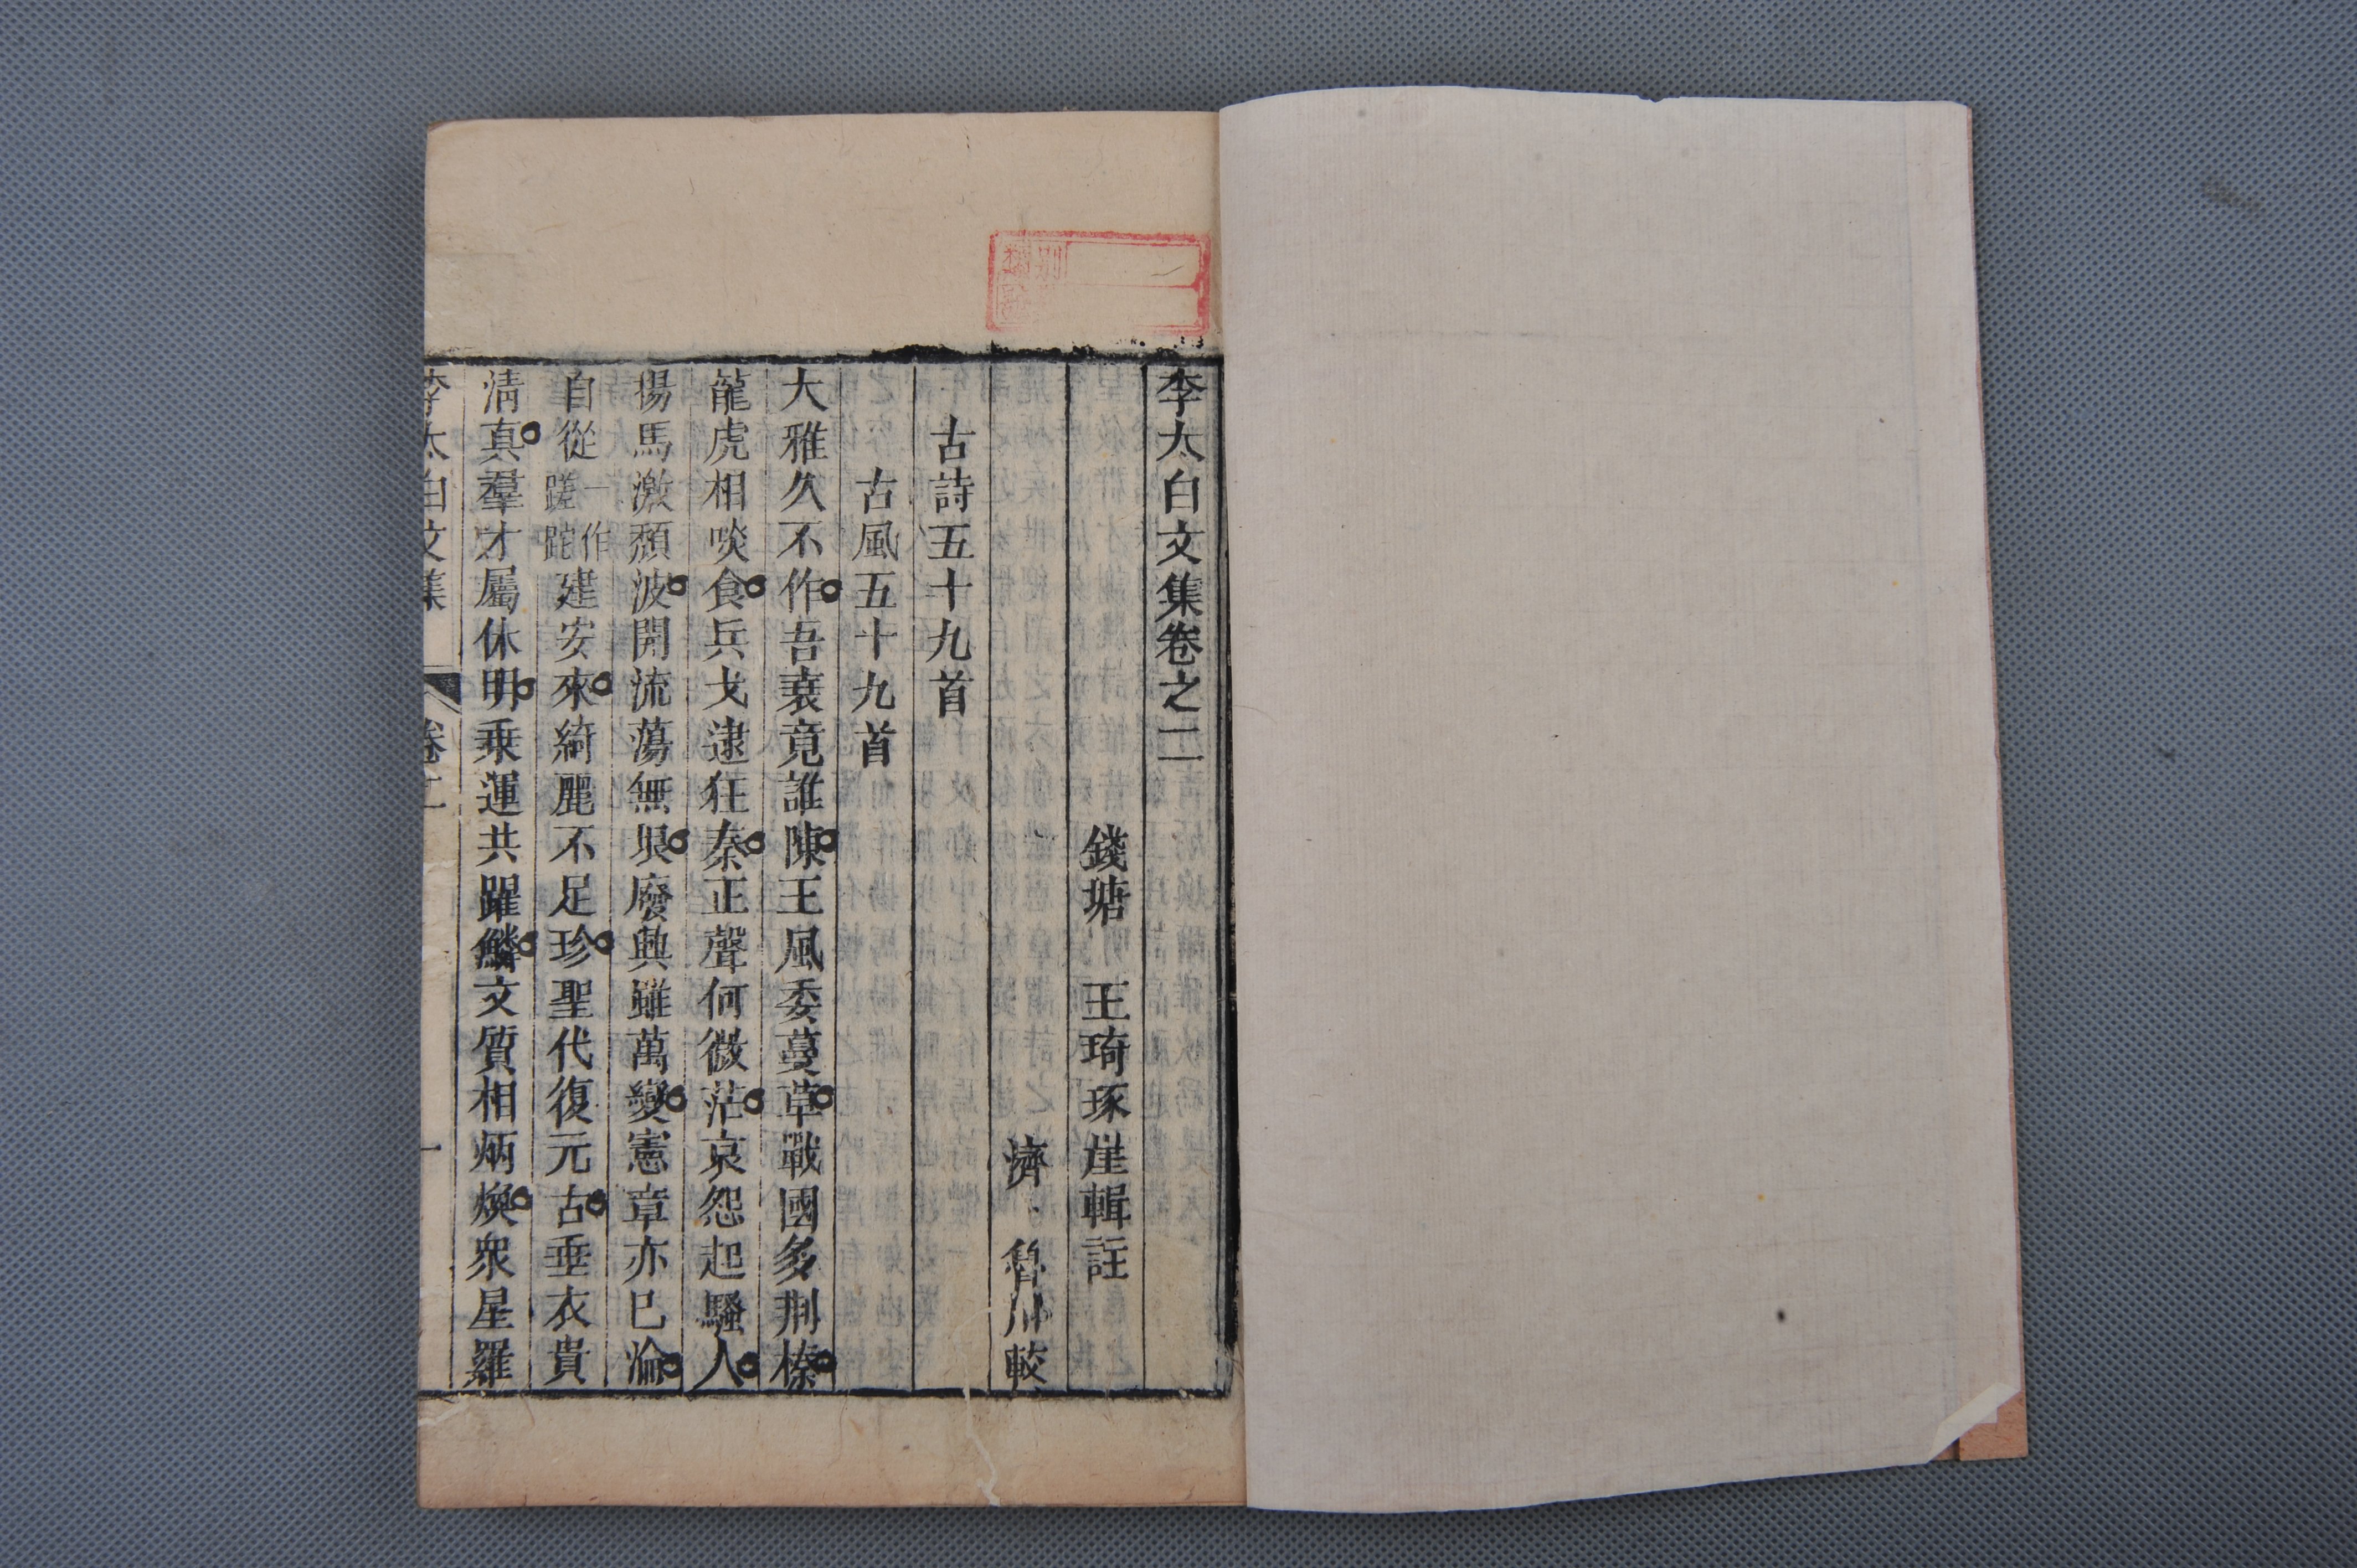 李太白文集卷之二
錢塘 王琦琢崖輯註
濟 魯川較
古詩五十九首
古風五十九首
大雅久不作吾衰竟誰陳王風委蔓草戰國多荆榛
龍虎相啖食兵戈逮狂秦正聲何微茫哀怨起騷人
揚馬激頹波開流蕩無垠廢興雖萬變憲章亦已淪
自從一作蹉跎建安來綺麗不足珍聖代復元古垂衣貴
清真羣才屬休明乘運共躍鱗文質相炳煥衆星羅
李太白文集 卷二 一